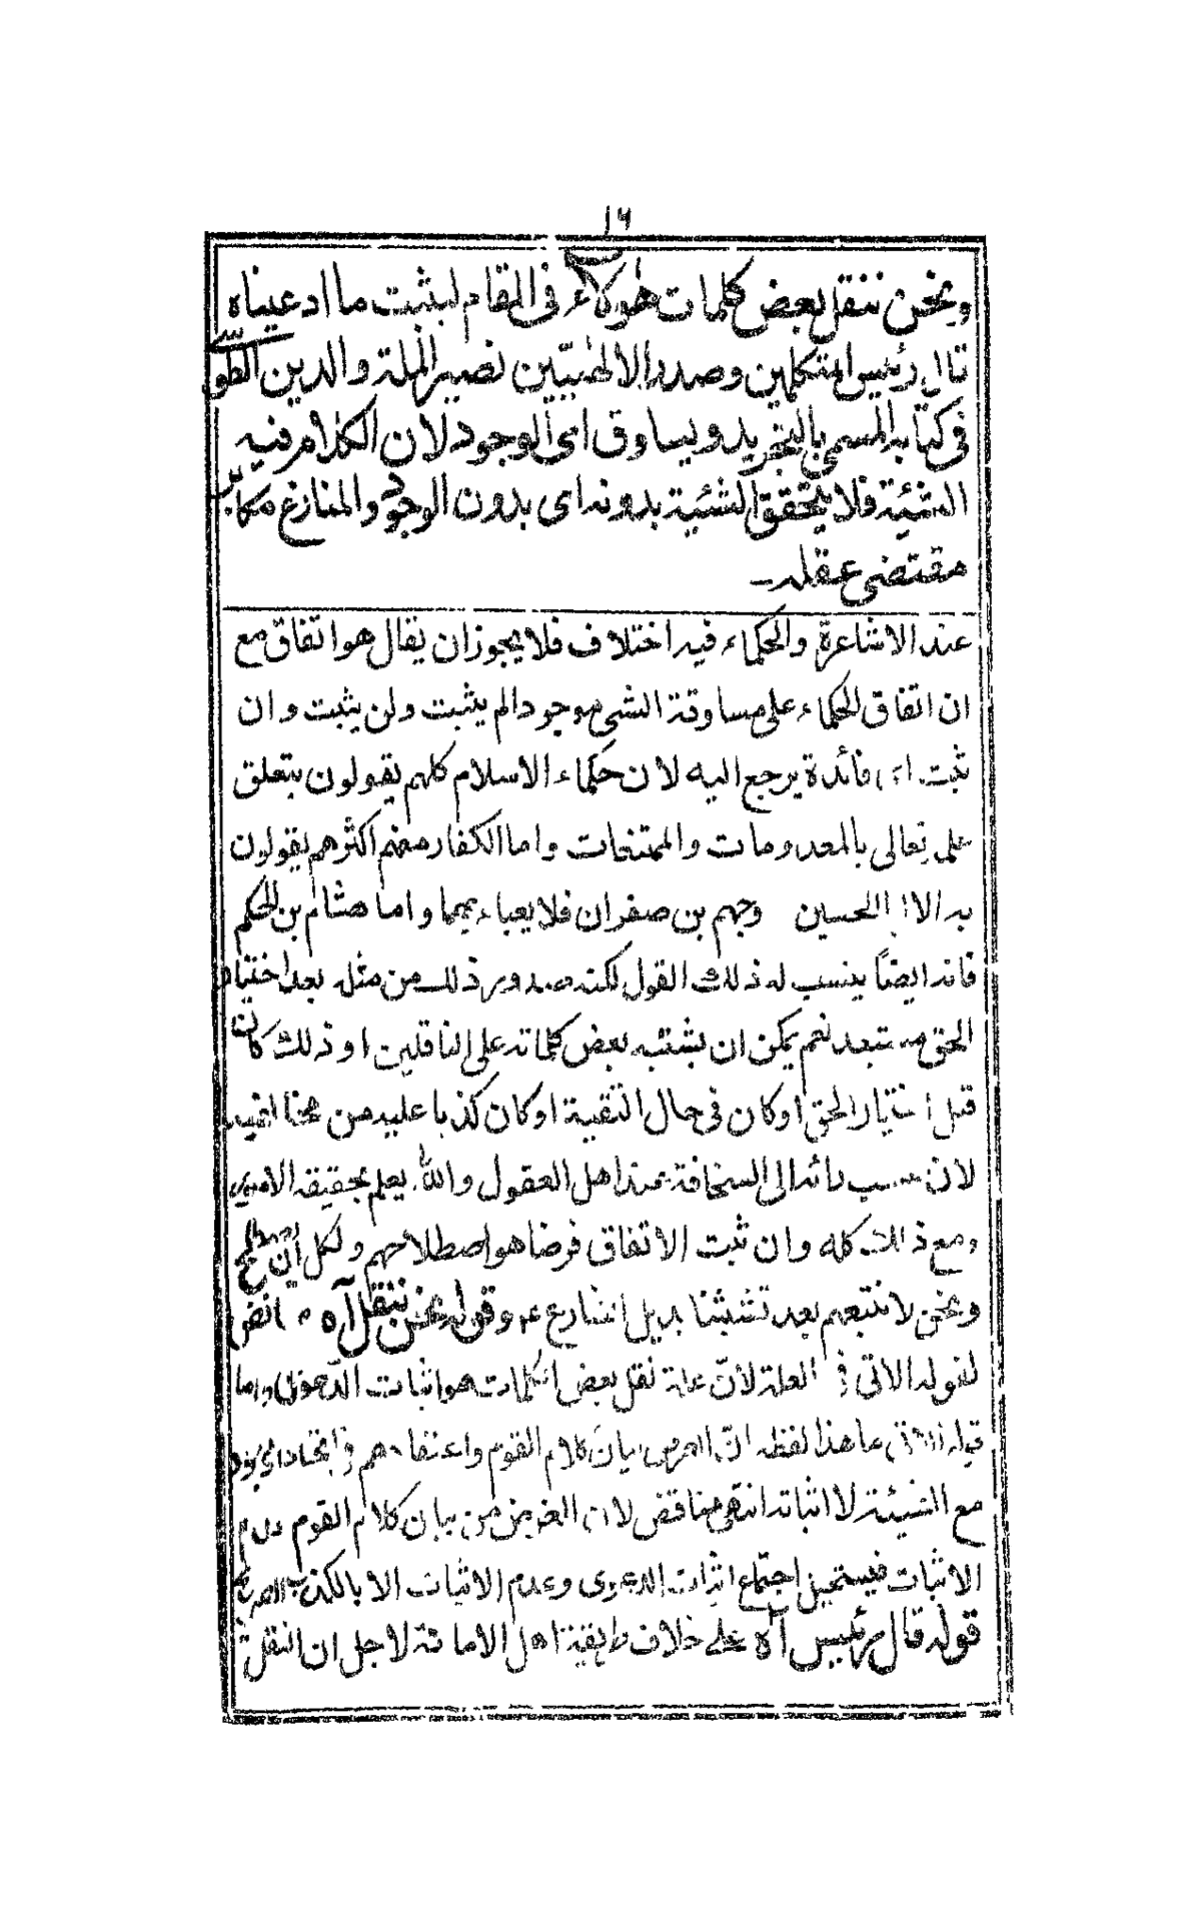 ١٦
ونحن ننقل بعض كلمات هؤلاء في المقام ليثبت ما ادعيناه
قال رئيس المتكلمين وصدر الالهيّين نصير الملة والدين الطوسي
في كتابه المسمى بالتجريد ويساوق اى الوجود لان الكلام فيه
الشئية فلا يتحقق الشئية بدونه اى بدون الوجود والمنازع مكابر
مقتضى عقله
عند الاشاعرة والحكماء فيه اختلاف فلا يجوز ان يقال هو اتفاق مع
ان اتفاق الحكماء على مساوقة الشى موجودا لم يثبت ولن يثبت وان
ثبت اى فائدة يرجع اليه لان حكماء الاسلام كلهم يقولون بتعلق
علمه تعالى بالمعدومات والممتنعات واما الكفار منهم اكثرهم يقولون
به الا ابا الحسين وجهم بن صفران فلا يعباء بهما واما هشام بن الحكم
فانه ايضًا ينسب له ذلك القول لكنه صدور ذلك من مثله بعد اختيار
الحق مستبعد نعم يمكن ان يشتبه بعض كلماته على الناقلين او ذلك كان
قبل اختيار الحق او كان في حال التقية او كان كذبا عليه من
لان الى السخافة عند اهل العقول والله يعلم بحقيقة الامور
ومع ذلك كله وان ثبت الاتفاق فرضا هو اصطلاحهم ولكل ان يصطلح
ونحن لا نتبعهم بعد تشبثنا بذيل الشارع ع وقوله نحن ننقل آه
لقوله الاتى في العلة لأنّ علة نقل بعض الكلمات هو اثبات الدعوى واما
قوله الاتى ما هذا لفظه انّ الغرض بيان كلام القوم واعتقادهم في اتحاد الوجود
مع الشيئة لا اثباته انتهى مناقض لان الغرض من بيان كلام القوم
الاثبات فيستحيل اجتماع اثبات الدعوى وعدم الاثبات الا بالكذب
قوله قال رئيس آه على خلاف طريقة اهل الامامة لاجل ان النقل